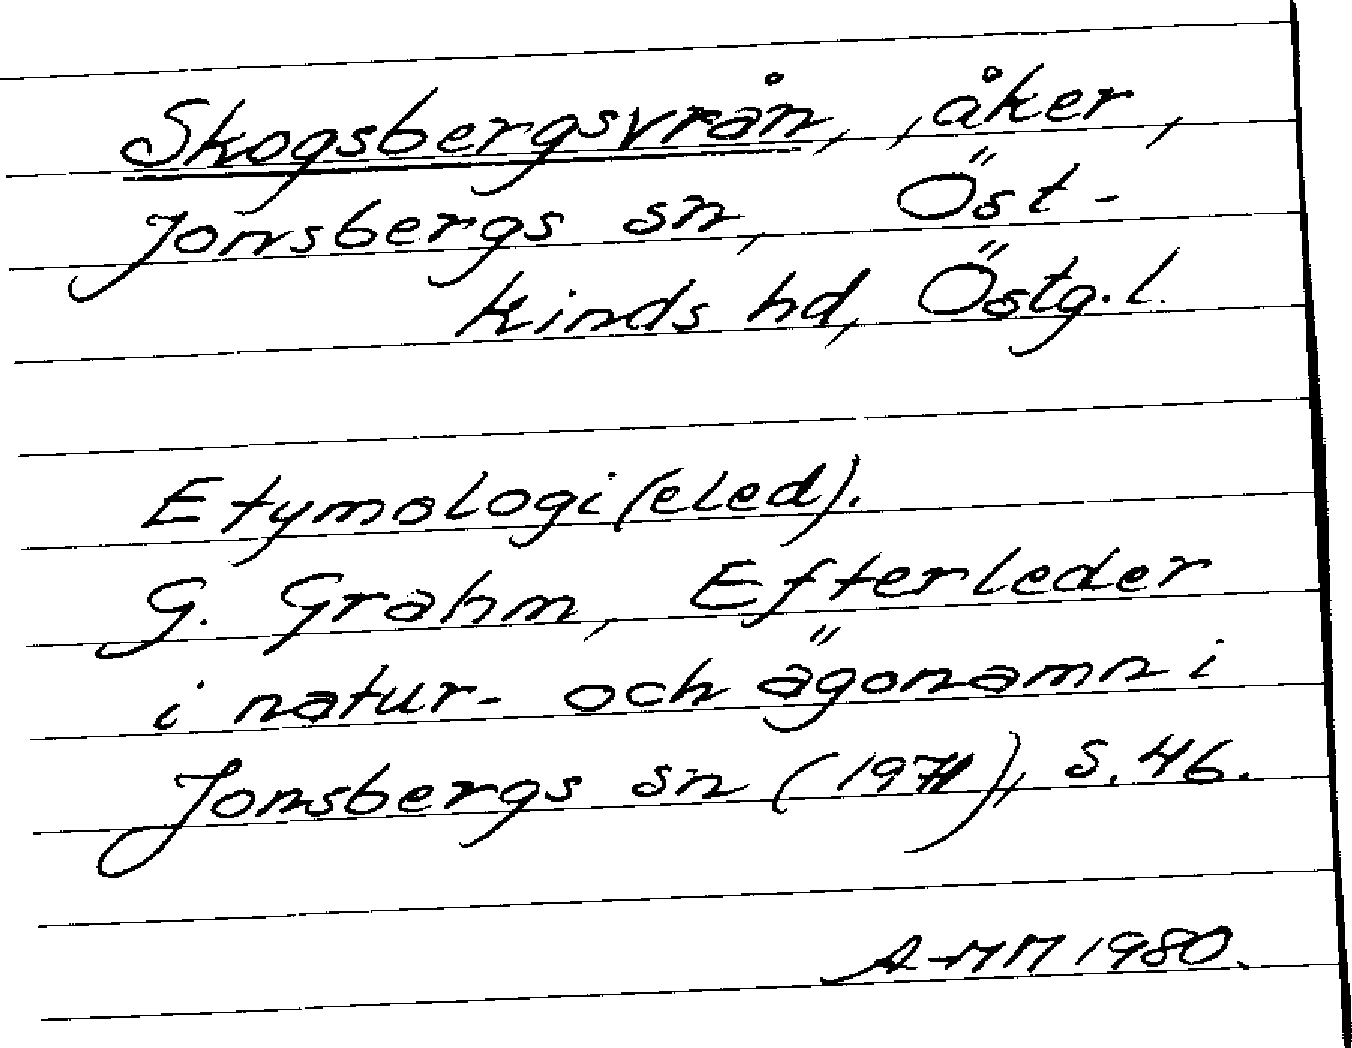 Skogsbergsvrån, , åker,
Jonsbergs sn, Öst-
kinds hd, Östg.l.
Etymologi (eled).
G. Grahm, Efterleder
i natur- och ägonamn i
Jonsbergs sn (1971), s. 46.
A-MM 1980.